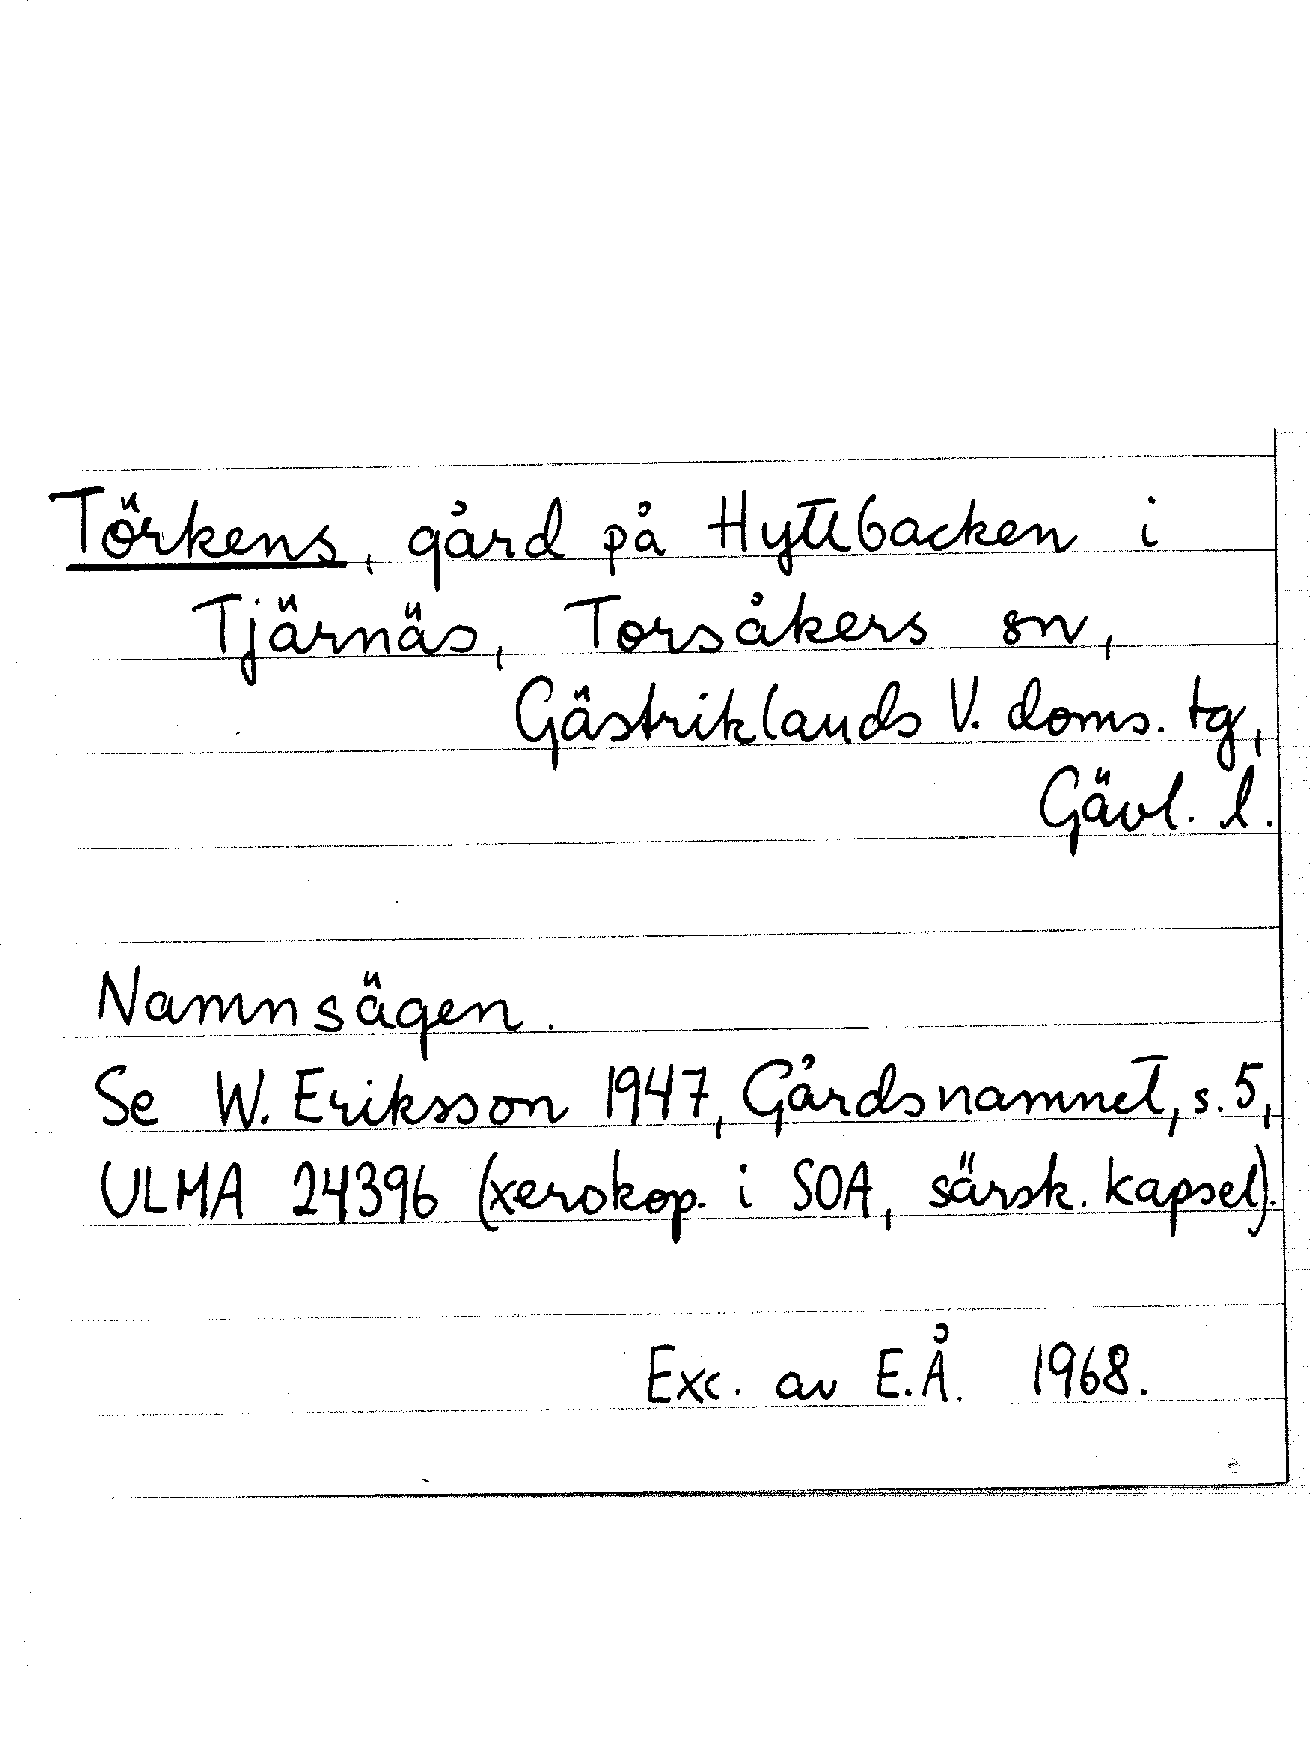 Törkens, gård på Hyttbacken i
Tjärnäs, Torsåkers sn,
Gästriklands V. doms. tg,
Gävl. l.
Namnsägen.
Se W. Eriksson 1947, Gårdsnamnet, s. 5,
ULMA 24396 (xerokop. i SOA, särsk. kapsel).
Exc. av E.Å. 1968.